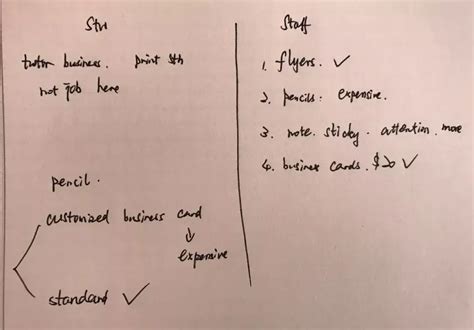 Stu
tutor business. print sth
not job here
pencil.
customized business card
↓
expensive
standard ✓
Staff
1. flyers. ✓
2. pencils. expensive.
3. note. sticky. attention. more
4. business cards. $20 ✓